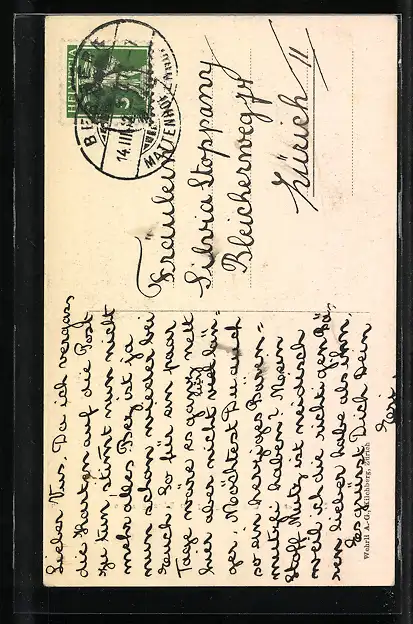 HELVETIA
5
BERN
14.III.
MATTENHOF
Fräulein
Silvia Stoppany
Bleicherweg
Zürich II
Lieber Nus. Da ich vergass
die Karten auf die Post
zu tun, stimmt nun nicht
mehr alles. Benz ist ja
nun schon wieder bei
euch. So für ein paar
Tage wäre es ganz nett
hier aber nicht
ger. Möchtest Du auch
so ein herziges Bären=
mutzi haben? Mein
Stoff Mutz ist neidisch
weil ich die richtigen Bä=
ren lieber habe als ihn.
Es grüsst Dich Dein
Wehrli A.-G., Kilchberg, Zürich